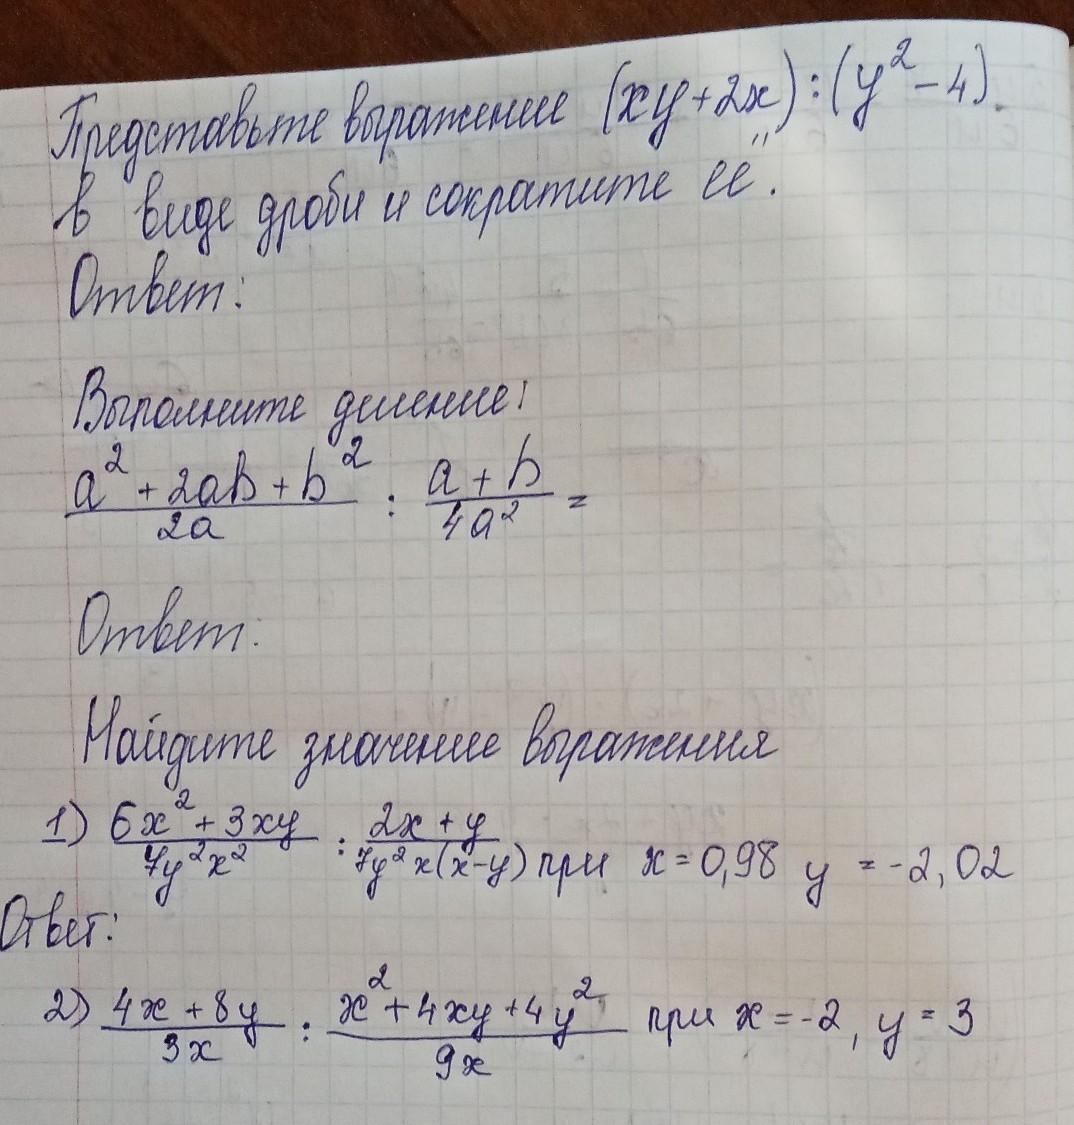 Представьте выражение (xy+2x):(y²-4).
в виде дроби и сократите её.
Ответ:
Выполните деление:
a²+2ab+b² / 2a : a+b / 4a² =
Ответ:
Найдите значение выражения
1) 6x²+3xy / 7y²x² : 2x+y / 7y²x(x-y) при x=0,98 y=-2,02
Ответ:
2) 4x+8y / 3x : x²+4xy+4y² / 9x при x=-2, y=3